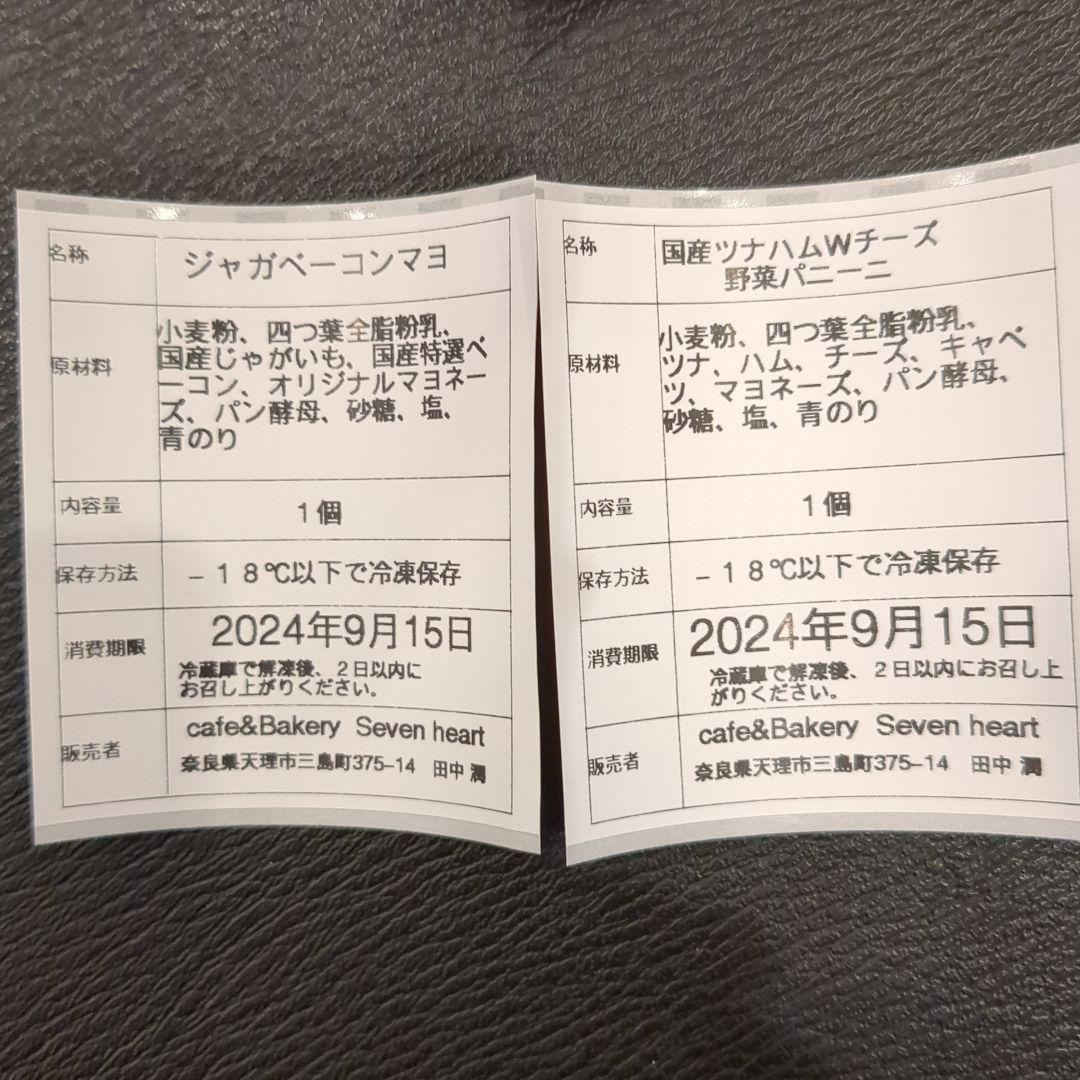 名称
ジャガベーコンマヨ
原材料
小麦粉、四つ葉全脂粉乳、
国産じゃがいも、国産特選ベ
ーコン、オリジナルマヨネー
ズ、パン酵母、砂糖、塩、
青のり
内容量
1個
保存方法
－１８℃以下で冷凍保存
消費期限
2024年9月15日
冷蔵庫で解凍後、２日以内に
お召し上がりください。
販売者
cafe&Bakery Seven heart
奈良県天理市三島町375−14 田中 潤
名称
国産ツナハムWチーズ
野菜パニーニ
原材料
小麦粉、四つ葉全脂粉乳、
ツナ、ハム、チーズ、キャベ
ツ、マヨネーズ、パン酵母、
砂糖、塩、青のり
内容量
1個
保存方法
－１８℃以下で冷凍保存
消費期限
2024年9月15日
冷蔵庫で解凍後、２日以内にお召し上
がりください。
販売者
cafe&Bakery Seven heart
奈良県天理市三島町375−14 田中 潤